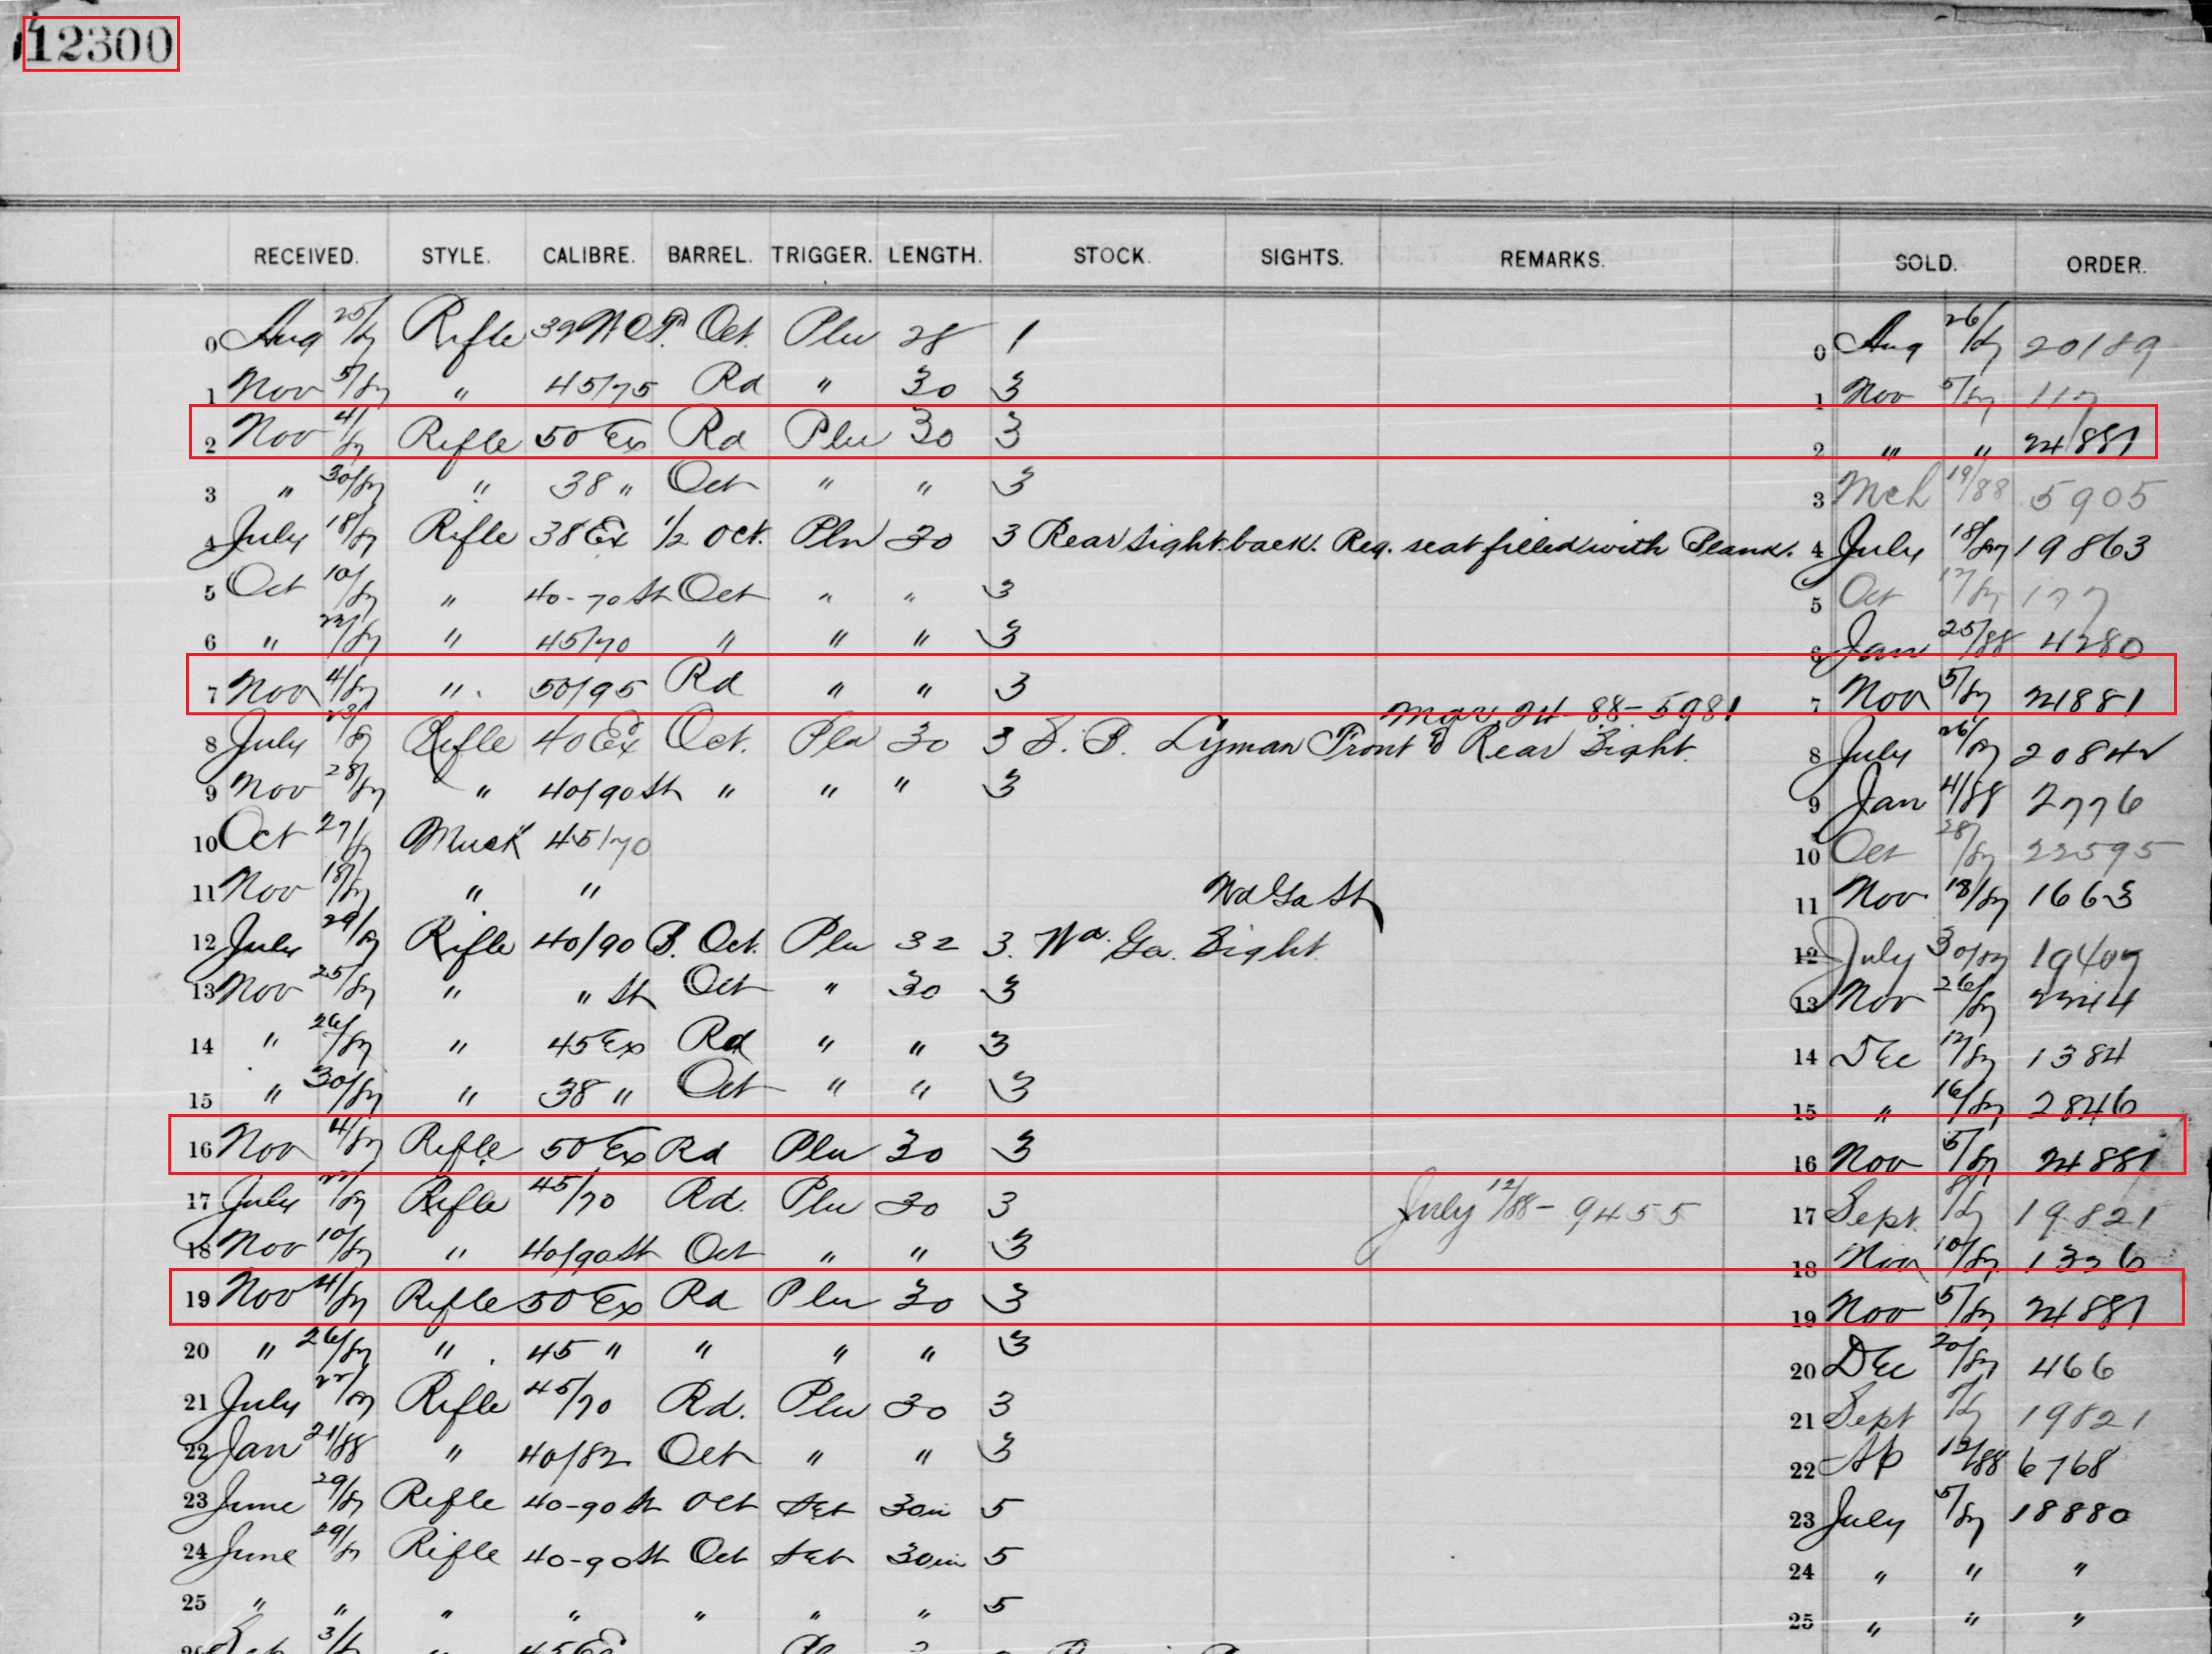 12300
RECEIVED. STYLE. CALIBRE. BARREL. TRIGGER. LENGTH. STOCK. SIGHTS. REMARKS. SOLD. ORDER.
0 Aug 25/87 Rifle 32 W.C.F. Oct. Pln 28 1 0 Aug 26/87 20189
1 Nov 5/87 " 45/75 Rd " 30 3 1 Nov 5/87 117
2 Nov 4/87 Rifle 50 Ex Rd Pln 30 3 2 " " 21881
3 " 30/87 " 38 " Oct " " 3 3 Mch 19/88 5905
4 July 18/87 Rifle 38 Ex 1/2 Oct. Pln 30 3 Rear Sight back. Reg. seat filled with Blank. 4 July 18/87 19863
5 Oct 10/87 " 40-70 St Oct " " 3 5 Oct 12/87 177
6 " 22/87 " 45/70 " " " 3 6 Jan 25/88 4280
7 Nov 4/87 " 50/95 Rd " " 3 7 Nov 5/87 21881
Mar. 24 - 88 - 5981
8 July 23/87 Rifle 40 Ex Oct. Pln 30 3 S. B. Lyman Front & Rear Sight. 8 July 26/87 20842
9 Nov 28/87 " 40/90 St " " " 3 9 Jan 4/88 2776
10 Oct 27/87 Musk 45/70 10 Oct 28/87 22595
11 Nov 18/87 " " 11 Nov 18/87 1663
Wd Ga St
12 July 29/87 Rifle 40/90 B. Oct. Pln 32 3. Wd. Ga. Sight. 12 July 30/87 19407
13 Nov 25/87 " " St Oct " 30 3 13 Nov 26/87 2244
14 " 26/87 " 45 Ex Rd " " 3 14 Dec 12/87 1384
15 " 30/87 " 38 " Oct " " 3 15 " 16/87 2846
16 Nov 4/87 Rifle 50 Ex Rd Pln 30 3 16 Nov 5/87 21881
17 July 22/87 Rifle 45/70 Rd. Pln 30 3 July 12/88 - 9455 17 Sept. 8/87 19821
18 Nov 10/87 " 40/90 St Oct " " 3 18 Nov 10/87 1326
19 Nov 4/87 Rifle 50 Ex Rd Pln 30 3 19 Nov 5/87 21881
20 " 26/87 " 45 " " " " 3 20 Dec 20/87 466
21 July 22/87 Rifle 45/70 Rd. Pln 30 3 21 Sept 19821
22 Jan 21/88 " 40/82 Oct " " 3 22 Ap 12/88 6768
23 June 29/87 Rifle 40-90 St Oct Set 30in 5 23 July 5/87 18880
24 June 29/87 Rifle 40-90 St Oct Set 30in 5 24 " " "
25 " " " " " " " 5 25 " " "